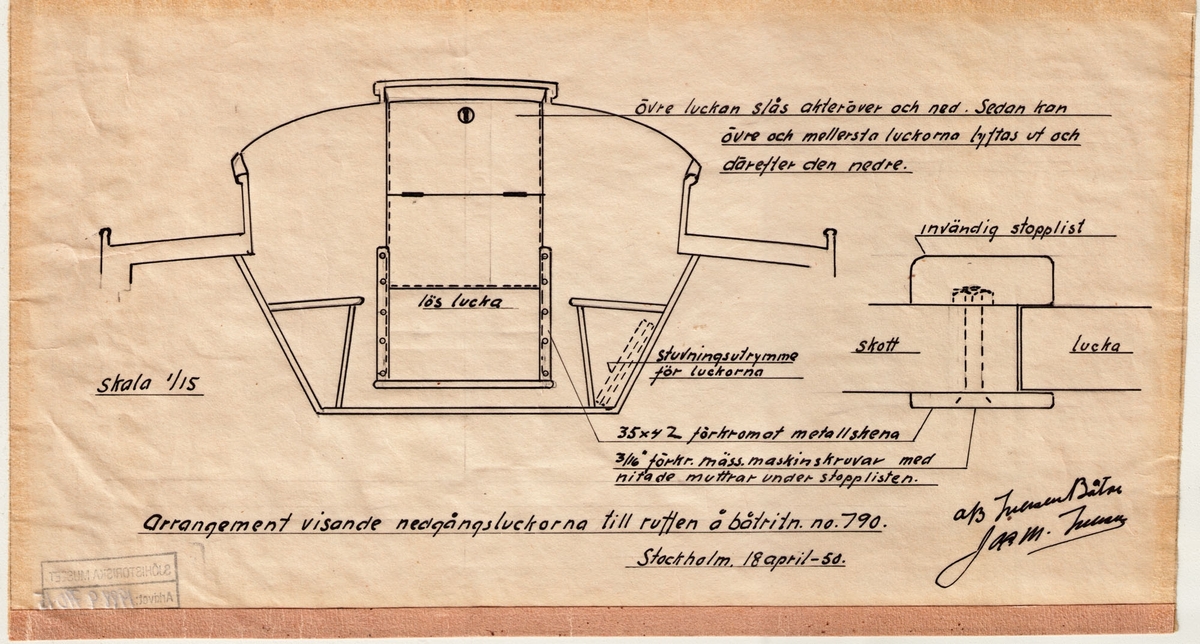 övre luckan slås akteröver och ned. Sedan kan
övre och mellersta luckorna lyftas ut och
därefter den nedre.
invändig stopplist
lös lucka
skott
lucka
stuvningsutrymme
för luckorna
Skala 1/15
35x4 förkromat metallskena
3/16" förkr. mäss. maskinskruvar med
nitade muttrar under stopplisten.
Arrangement visande nedgångsluckorna till ruffen å båtritn. no. 790.
Stockholm, 18 april-50.
SJÖHISTORISKA MUSEET
Arkivet: